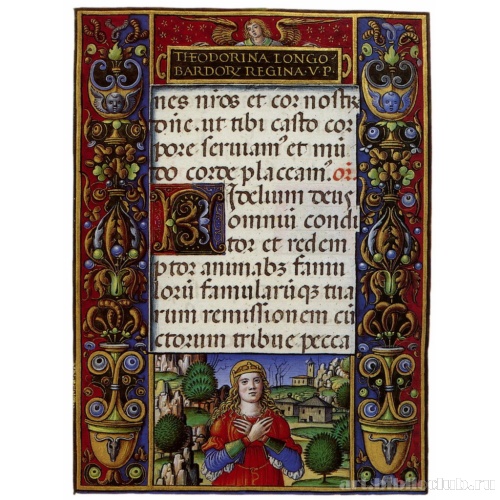 THEODORINA LONGO
BARDOR REGINA·V·P·
nes nr̃os et cor nostr̃
dñe.ut tibi casto cor
pore seruiam᾽ et mũ
do corde placeam᾽.or̃.
Fidelium deus
omniũ condi
tor et redem
ptor animabꝫ famu
lorũ famularũqꝫ tua
rum remissionem cũ
ctorum tribue pecca
artbiblioclub.ru